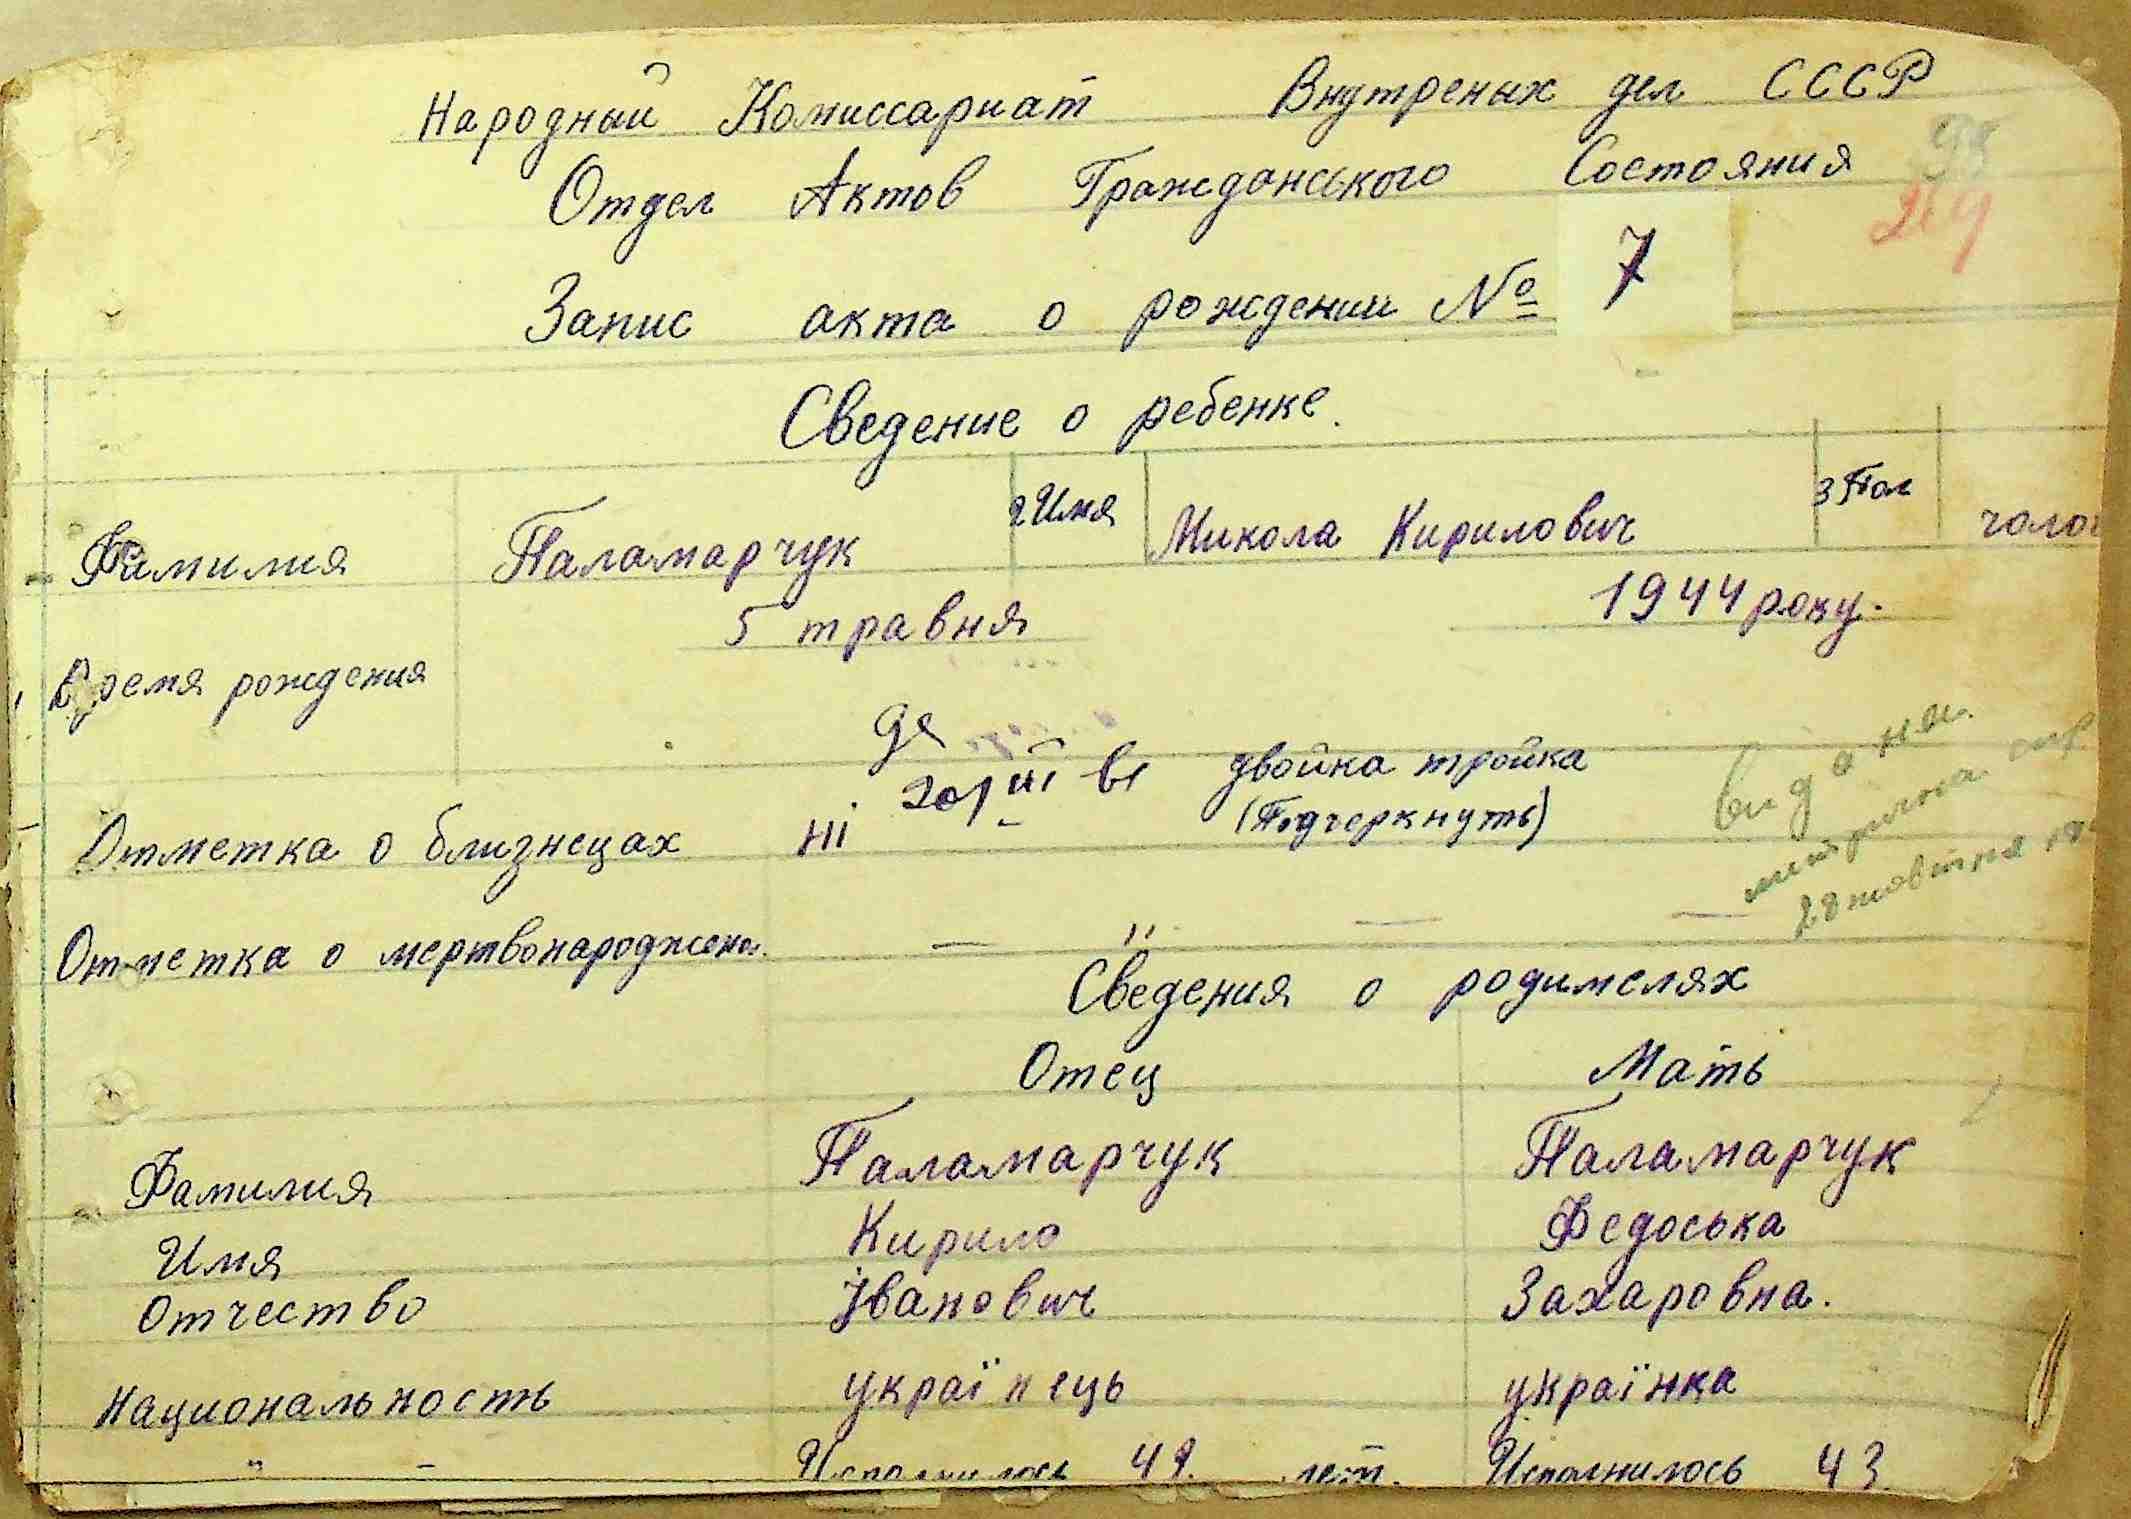 Народный Комиссариат Внутреных дел СССР
Отдел Актов Гражданського Состояния
Запис акта о рождении № 7
Сведение о ребенке.
Фамилия Паламарчук 2 Имя Микола Кирилович 3 Пол чолов
5 травня 1944 року.
Время рождения
двойка тройка
Отметка о близнецах ні (Подчеркнуть)
видана
метрична
28 жовтня
Отметка о мертвонароджено. — " — —
Сведения о родителях
Отец Мать
Фамилия Паламарчук Паламарчук
Имя Кирило Федоська
Отчество Іванович Захаровна.
Национальность українець українка
" - Исполнилось 49. лет. Исполнилось 43.